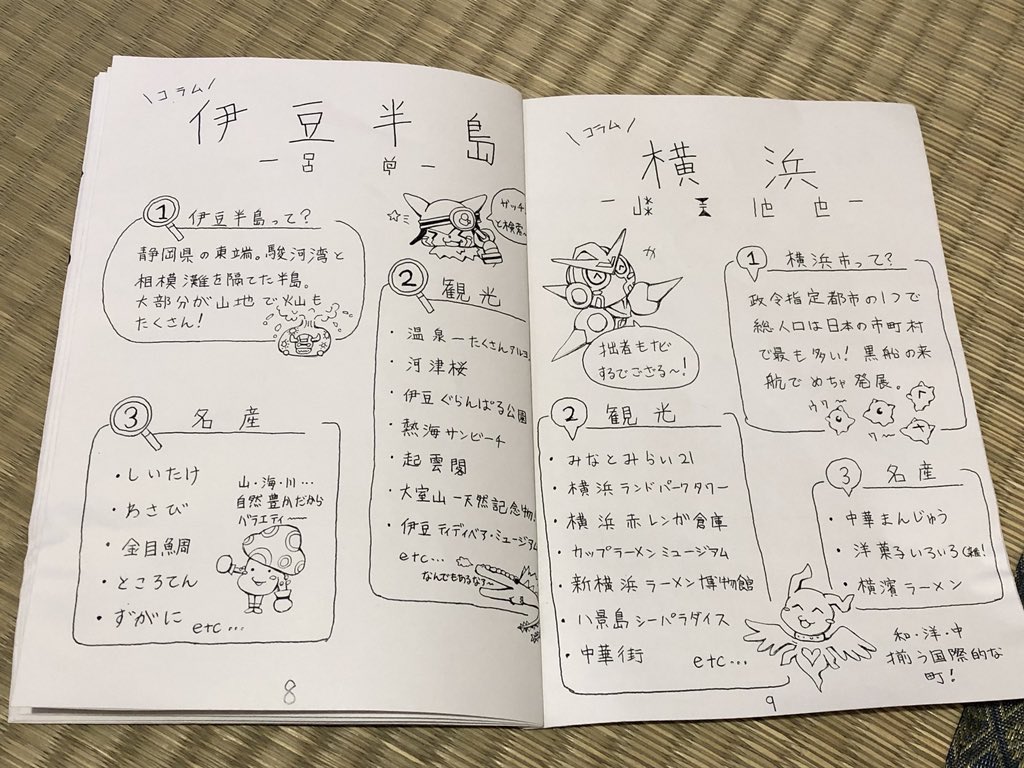 \コラム/
伊豆半島
① 伊豆半島って？
静岡県の東端。駿河湾と
相模灘を隔てた半島。
大部分が山地で火山も
たくさん！
ガッチ
と検索
② 観光
・温泉 一たくさんアルヨ
・河津桜
・伊豆ぐらんぱる公園
・熱海サンビーチ
・起雲閣
・大室山 一天然記念物!
・伊豆テディベア・ミュージアム
etc…
なんでもあるなァ〜
③ 名産
・しいたけ
・わさび
・金目鯛
・ところてん
・ずがに
etc…
山・海・川…
自然豊かだから
バラエティ〜
8
\コラム/
横浜
① 横浜市って？
政令指定都市の1つで
総人口は日本の市町村
で最も多い！黒船の来
航でめちゃ発展。
ワー
拙者もナビ
するでござる〜！
② 観光
・みなとみらい21
・横浜ランドパークタワー
・横浜赤レンガ倉庫
・カップラーメンミュージアム
・新横浜ラーメン博物館
・八景島シーパラダイス
・中華街
etc…
③ 名産
・中華まんじゅう
・洋菓子いろいろ
・横濱ラーメン
和・洋・中
揃う国際的な
町！
9